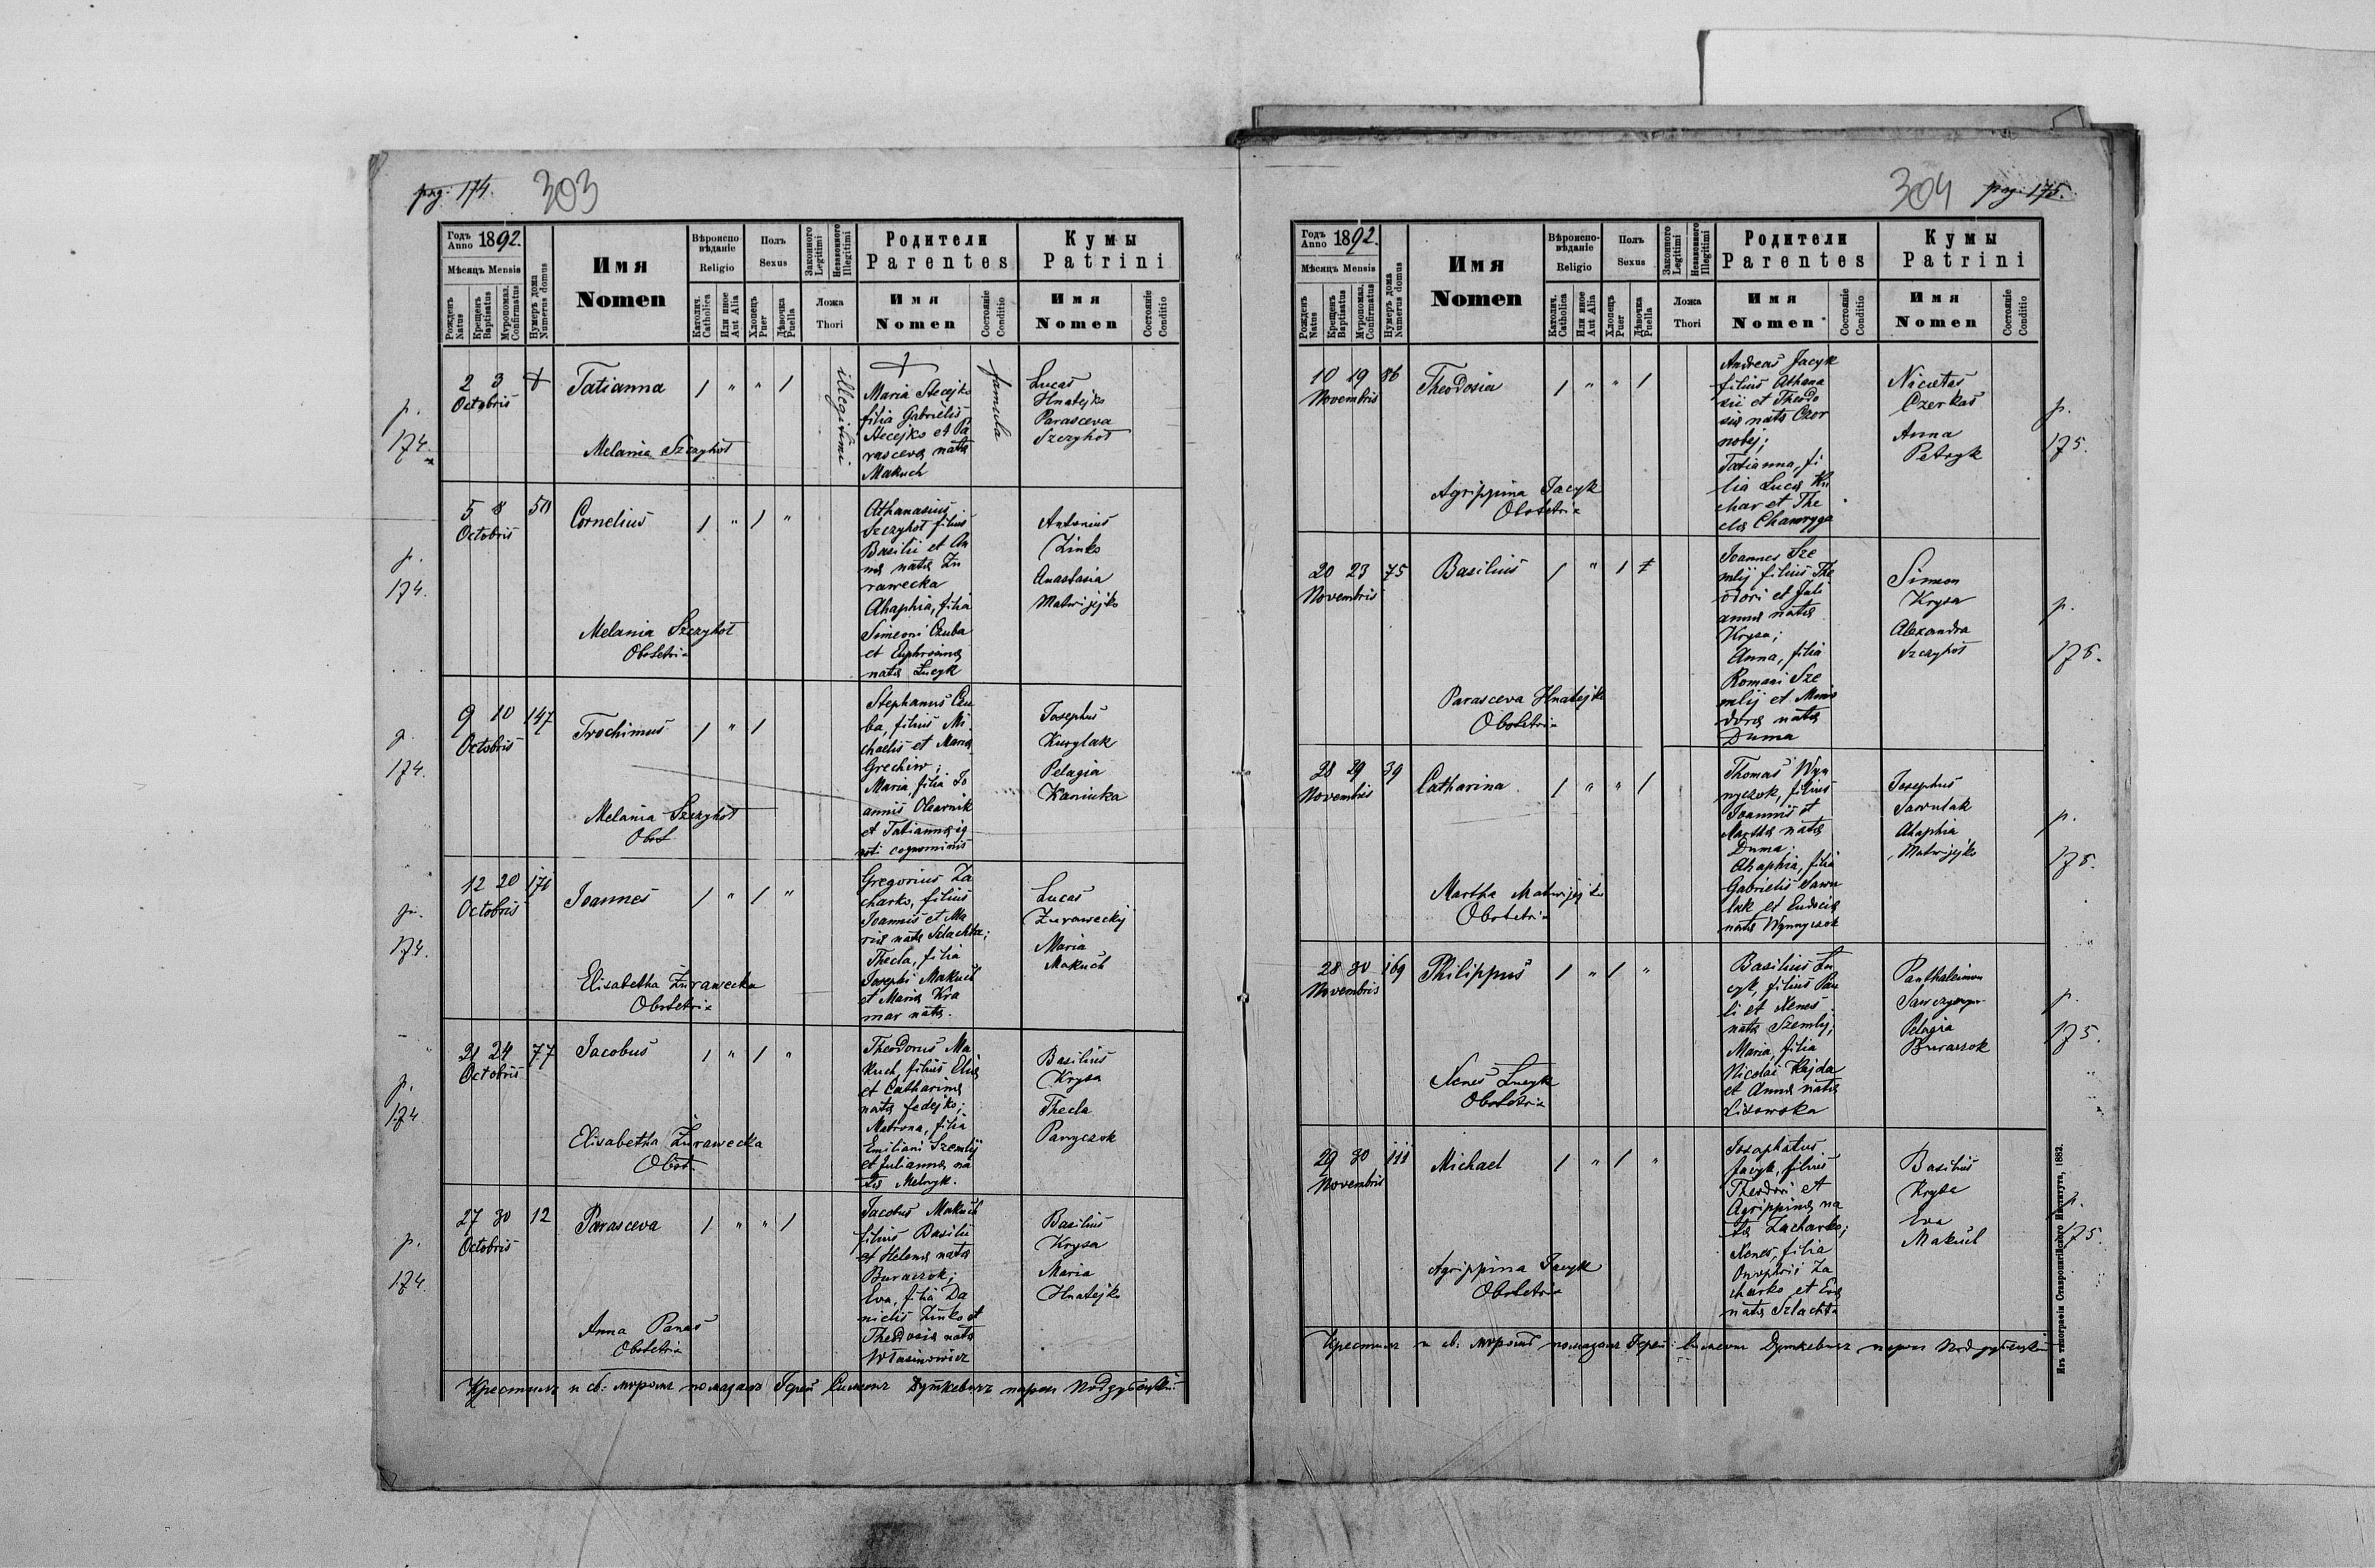 pag: 174.
303
Годъ
Anno 1892.
Мѣсяцъ Mensis
Рожденъ
Natus
Крещенъ
Baptisatus
Мѵропомаз.
Confirmatus
Нумеръ дома
Numerus domus
Имя
Nomen
Вѣроиспо
вѣданіе
Religio
Католич.
Catholica
Или иное
Aut Alia
Полъ
Sexus
Хлопецъ
Puer
Дѣвочка
Puella
Законного
Legitimi
Незаконного
Illegitimi
Ложа
Thori
Родители
Parentes
Имя
Nomen
Состояніе
Conditio
Кумы
Patrini
Имя
Nomen
Состояніе
Conditio
p.
174.
2 3
Octobris
Tatianna
/ " " /
illegitimi
Melania Szczyhot
Maria Stecejko
filia Gabrielis
Stecejko et Pa
rasceva nata
Makuch
famula
Lucas
Hnatejko
Parasceva
Szczyhot
p.
174.
5 8
Octobris
Cornelius
/ " / "
Melania Szczyhot
Obstetrix
Athanasius
Szczyhot filius
Basilii et An
na nata Żu
rawecka
Ahaphia, filia
Simeoni Czuba
et Euphrosina
nata Łucyk
Antonius
Zinko
Anastasia
Matwijejko
p.
174.
9 10 147
Octobris
Trochimus
/ " /
Melania Szczyhot
Obst
Stephanus Czu
ba, filius Mi
chaelis et Maria
Grechiw;
Maria, filia Jo
annis Olearnik
et Tatianna ig
noti cognominis
Josephus
Kurylak
Pelagia
Kaniuka
p.
174.
12 20 171
Octobris
Joannes
/ " / "
Elisabetha Żurawecka
Obstetrix
Gregorius Za
charko, filius
Joannis et Ma
ria nata Szlachta;
Thecla, filia
Josephi Makuch
et Maria Kra
mar nata.
Lucas
Żuraweckij
Maria
Makuch
p.
174
21 24 77
Octobris
Jacobus
/ " / "
Elisabetha Żurawecka
Obst.
Theodorus Ma
kuch, filius Elia
et Catharina
nata Fedejko;
Matrona, filia
Emiliani Szemlij
et Julianna na
ta Melnyk.
Basilius
Krysa
Thecla
Panyczok
p.
174.
27 30 12
Octobris
Parasceva
/ " " /
Anna Panas
Obstetrix
Jacobus Makuch
filius Basilii
et Helena nata
Buraczok;
Eva, filia Da
nielis Zinko et
Theodosia nata
Własinowicz
Basilius
Krysa
Maria
Hnatejko
Крестилъ и св: мѵромъ помазалъ Іерей Симеонъ Дуткевичъ парох Поддубецкій
304
pag: 175.
Годъ
Anno 1892.
Мѣсяцъ Mensis
Рожденъ
Natus
Крещенъ
Baptisatus
Мѵропомаз.
Confirmatus
Нумеръ дома
Numerus domus
Имя
Nomen
Вѣроиспо-
вѣданіе
Religio
Католич.
Catholica
Или иное
Aut Alia
Полъ
Sexus
Хлопецъ
Puer
Дѣвочка
Puella
Законного
Legitimi
Незаконного
Illegitimi
Ложа
Thori
Родители
Parentes
Имя
Nomen
Состояніе
Conditio
Кумы
Patrini
Имя
Nomen
Состояніе
Conditio
10 19 86
Novembris
Theodosia
/ " " /
Agrippina Jacyk
Obstetrix
Andreas Jacyk
filius Athana
sii et Theodo
sia nata Czor
nobij;
Tatianna, fi
lia Luca Ku
char et The
cla Chamryga
Nicetas
Czerkas
Anna
Petryk
p.
175.
20 23 75
Novembris
Basilius
/ " /
Parasceva Hnatejko
Obstetrix
Joannes Sze
mlij filius The
odori et Juli
anna nata
Krysa;
Anna, filia
Romani Sze
mlij et Mino
dora nata
Duma
Simeon
Krysa
Alexandra
Szczyhot
p.
175.
28 29 39
Novembris
Catharina
/ " " /
Martha Matwijejko
Obstetrix
Thomas Wyn
nyczok, filius
Joannis et
Martha nata
Duma;
Ahaphia, filia
Gabrielis Sawu
lak et Eudocia
nata Wynnyczok
Josephus
Sawulak
Ahaphia
Matwijejko
p.
175.
28 30 169
Novembris
Philippus
/ " / "
Xenes Łucyk
Obstetrix
Basilius Łu
cyk, filius Pau
li et Xenes
nata Szemlij;
Maria, filia
Nicolai Hajda
et Anna nata
Lisowska
Panthaleimon
Pelagia
Buraczok
p.
175.
29 30 111
Novembris
Michael
/ " / "
Agrippina Jacyk
Obstetrix
Josaphatus
Jacyk, filius
Theodori et
Agrippina na
ta Zacharko;
Xenes, filia
Onuphrii Za
charko et Eva
nata Szlachta
Basilius
Krysa
Eva
Makuch
p.
175.
Крестилъ и св: мѵромъ помазалъ Іерей: Симеонъ Дуткевичъ парох Поддубецкій
Изъ типографіи Ставропигійского Института, 1882.